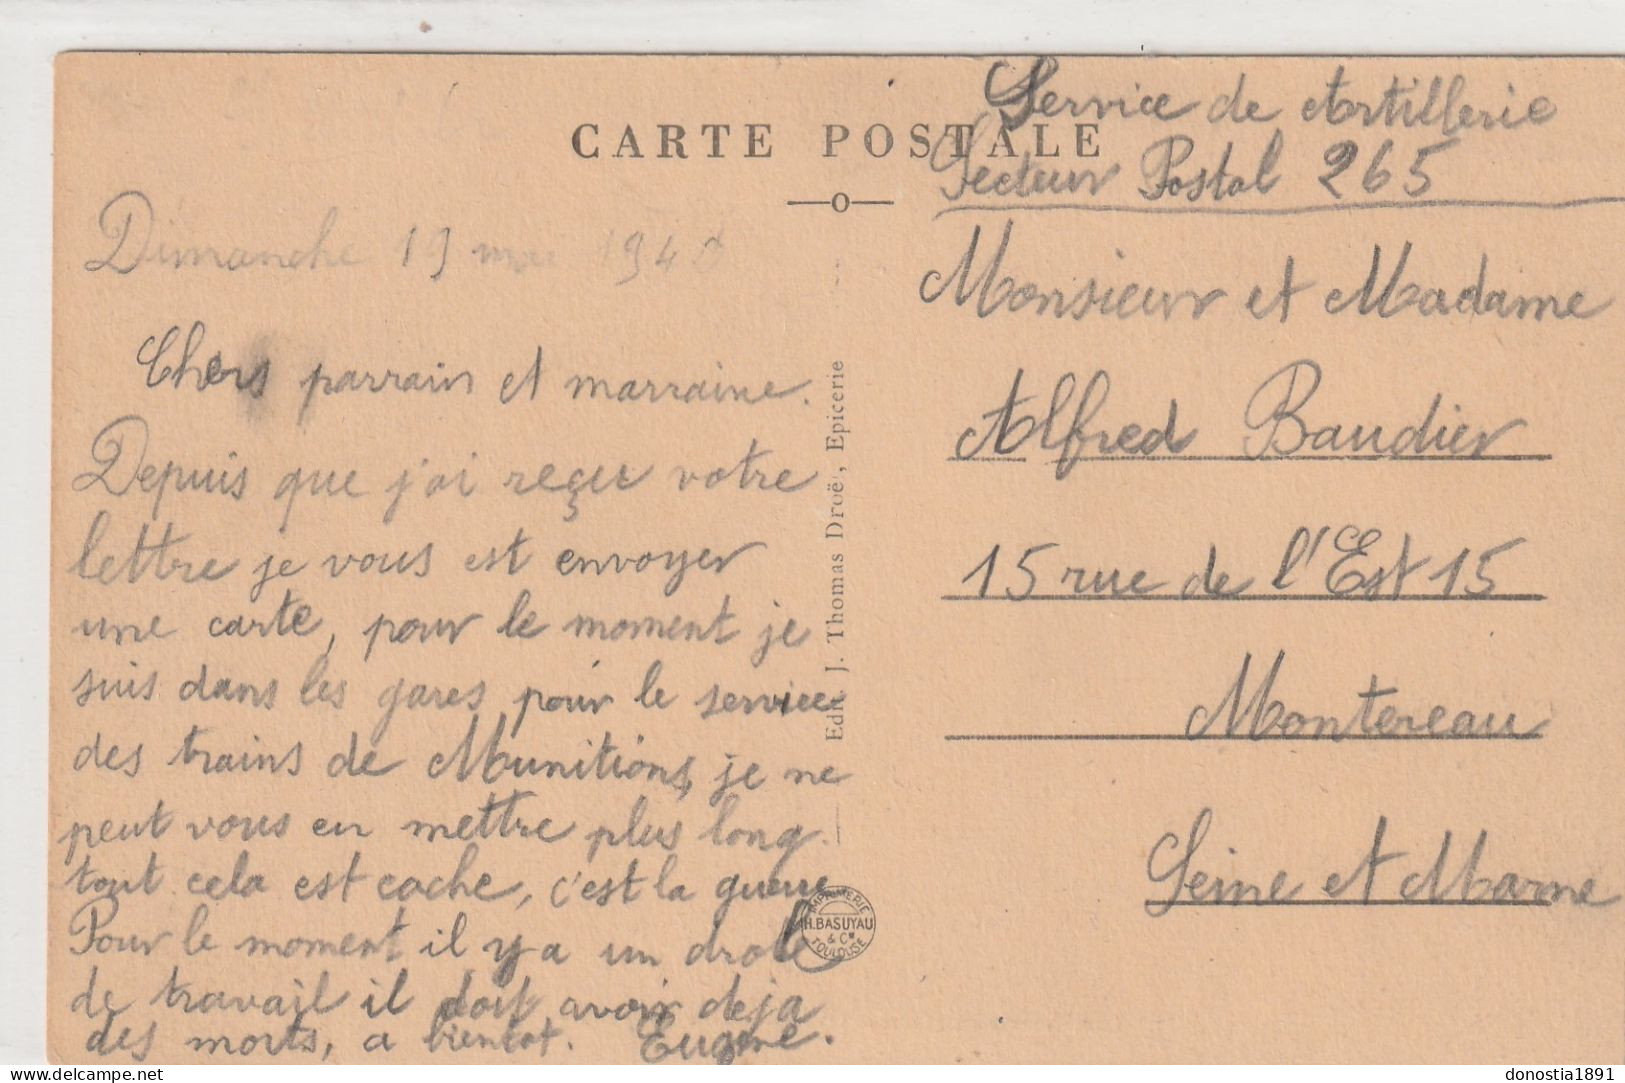 CARTE POSTALE
Service de Artillerie
Secteur Postal 265
Dimanche 19 mai 1940
Chers parrain et marraine.
Depuis que j'ai reçue votre
lettre je vous est envoyer
une carte, pour le moment je
suis dans les gares pour le service
des trains de Munitions, je ne
peut vous en mettre plus long.
tout cela est cache, c'est la guerre
Pour le moment il y a un drole
de travail il doit avoir deja
des morts, a bientot. Eugène.
Edit. J. Thomas Droë, Epicerie
IMPRIMERIE
H. BASUYAU
& Cie
TOULOUSE
Monsieur et Madame
Alfred Baudier
15 rue de l'Est 15
Montereau
Seine et Marne
delcampe.net
donostia1891